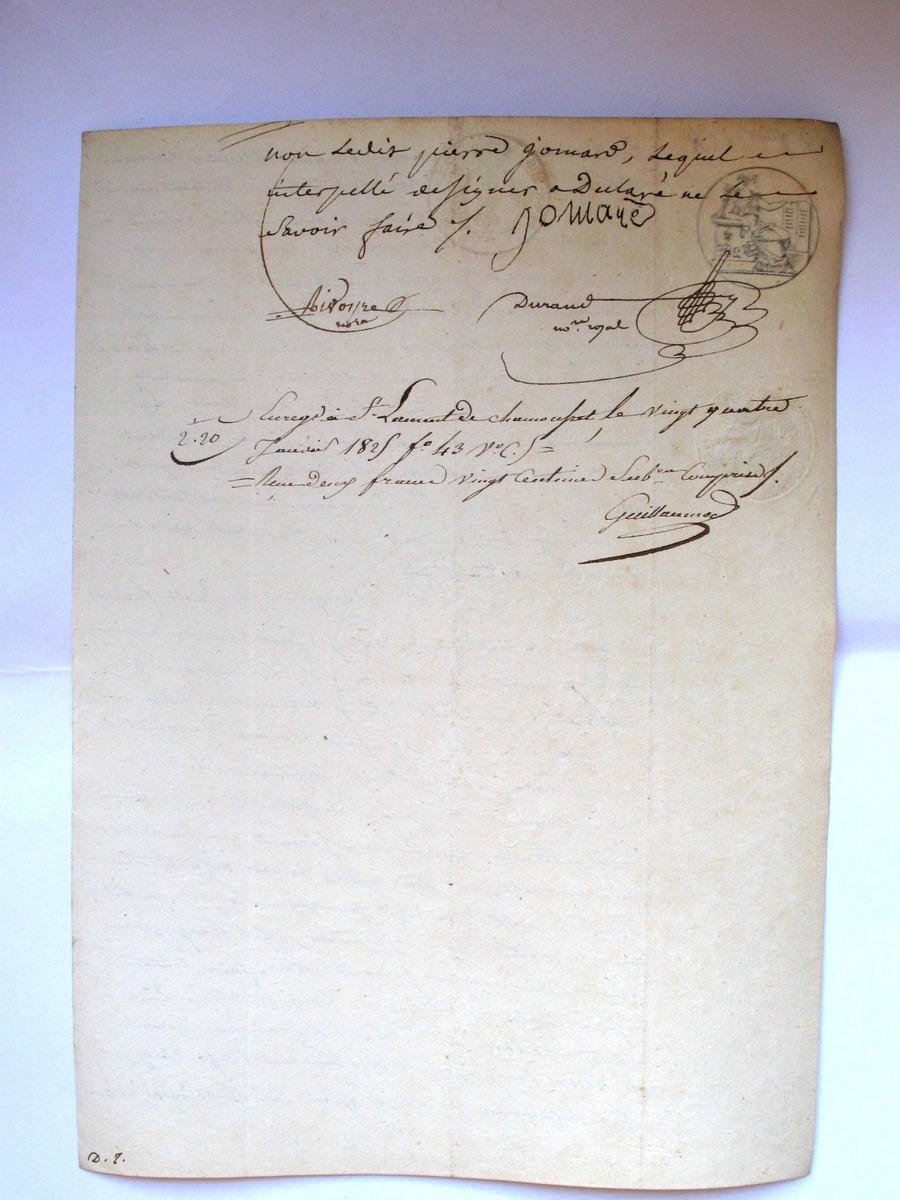 non ledit pierre jomard, lequel
interpellé de signer a Declaré ne le
Savoir faire /. jomard
Durand
no.re royal
2.20
Enreg.é à S.t Laurent de chamousset, le vingt quatre
Janvier 1825 f.o 43 V.o C. 5 =
= Reçu deux francs vingt Centimes Sub.on Comprise /.
Guillaumod
D. 2.